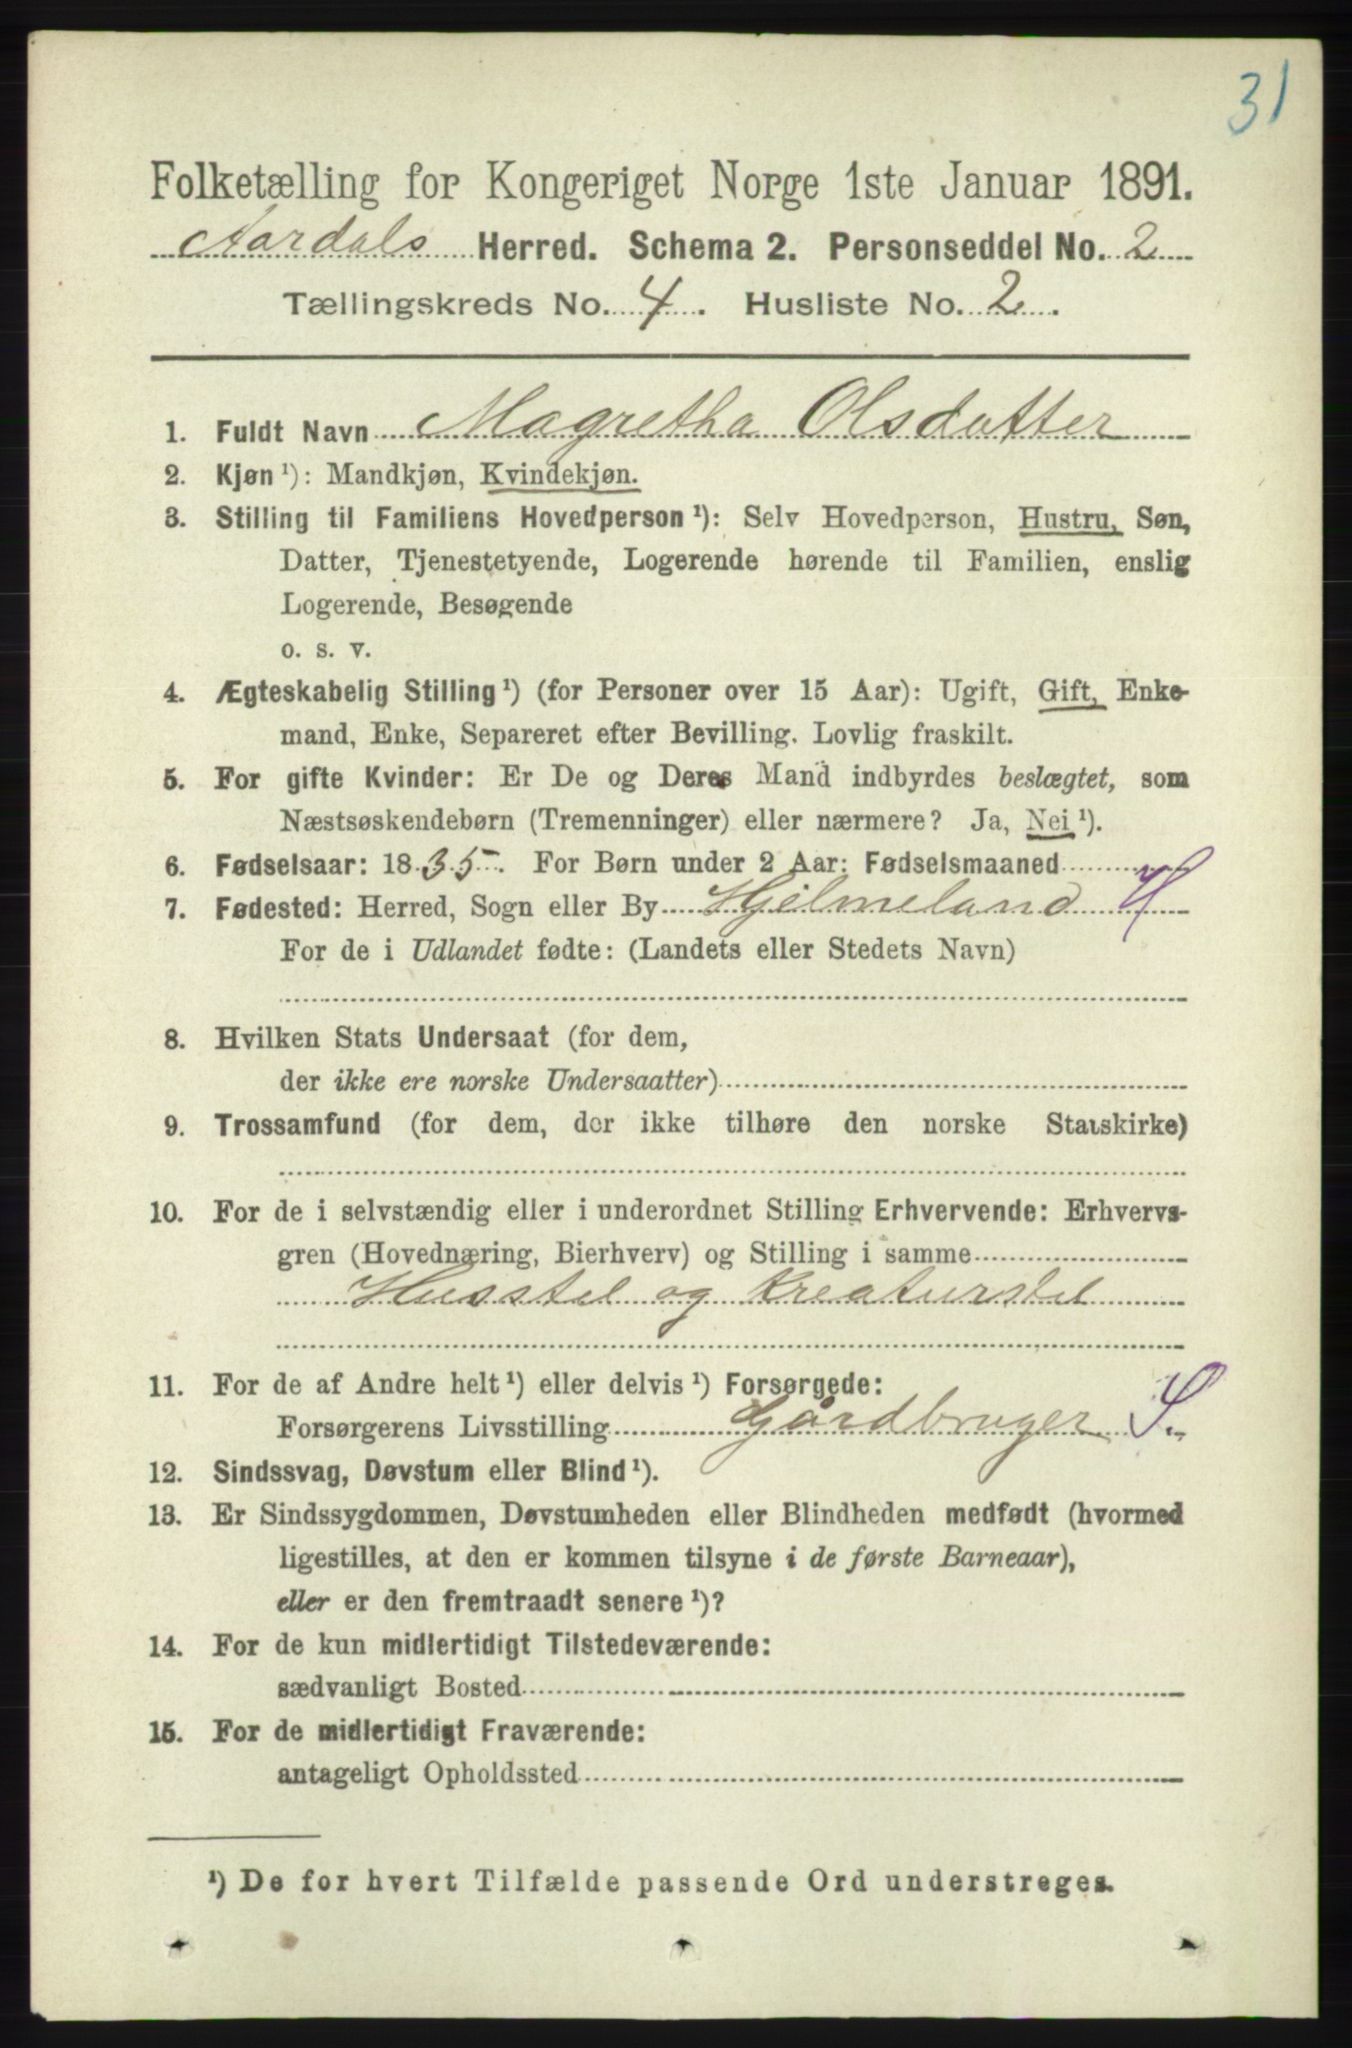 31
Folketælling for Kongeriget Norge 1ste Januar 1891.
Aardals Herred. Schema 2. Personseddel No. 2
Tællingskreds No. 4. Husliste No. 2.
1. Fuldt Navn Magretha Olsdatter
2. Kjøn ¹): Mandkjøn, Kvindekjøn.
3. Stilling til Familiens Hovedperson ¹): Selv Hovedperson, Hustru, Søn,
Datter, Tjenestetyende, Logerende hørende til Familien, enslig
Logerende, Besøgende
o. s. v.
4. Ægteskabelig Stilling ¹) (for Personer over 15 Aar): Ugift, Gift, Enke-
mand, Enke, Separeret efter Bevilling. Lovlig fraskilt.
5. For gifte Kvinder: Er De og Deres Mand indbyrdes beslægtet, som
Næstsøskendebørn (Tremenninger) eller nærmere? Ja, Nei ¹).
6. Fødselsaar: 1835. For Børn under 2 Aar: Fødselsmaaned
7. Fødested: Herred, Sogn eller By Hjelmeland H
For de i Udlandet fødte: (Landets eller Stedets Navn)
8. Hvilken Stats Undersaat (for dem,
der ikke ere norske Undersaatter)
9. Trossamfund (for dem, der ikke tilhøre den norske Statskirke)
10. For de i selvstændig eller i underordnet Stilling Erhvervende: Erhvervs-
gren (Hovednæring, Bierhverv) og Stilling i samme
Husstel og Kreaturstel
11. For de af Andre helt ¹) eller delvis ¹) Forsørgede:
Forsørgerens Livsstilling Gårdbruger S.
12. Sindssvag, Døvstum eller Blind ¹).
13. Er Sindssygdommen, Døvstumheden eller Blindheden medfødt (hvormed
ligestilles, at den er kommen tilsyne i de første Barneaar),
eller er den fremtraadt senere ¹)?
14. For de kun midlertidigt Tilstedeværende:
sædvanligt Bosted
15. For de midlertidigt Fraværende:
antageligt Opholdssted
¹) De for hvert Tilfælde passende Ord understreges.